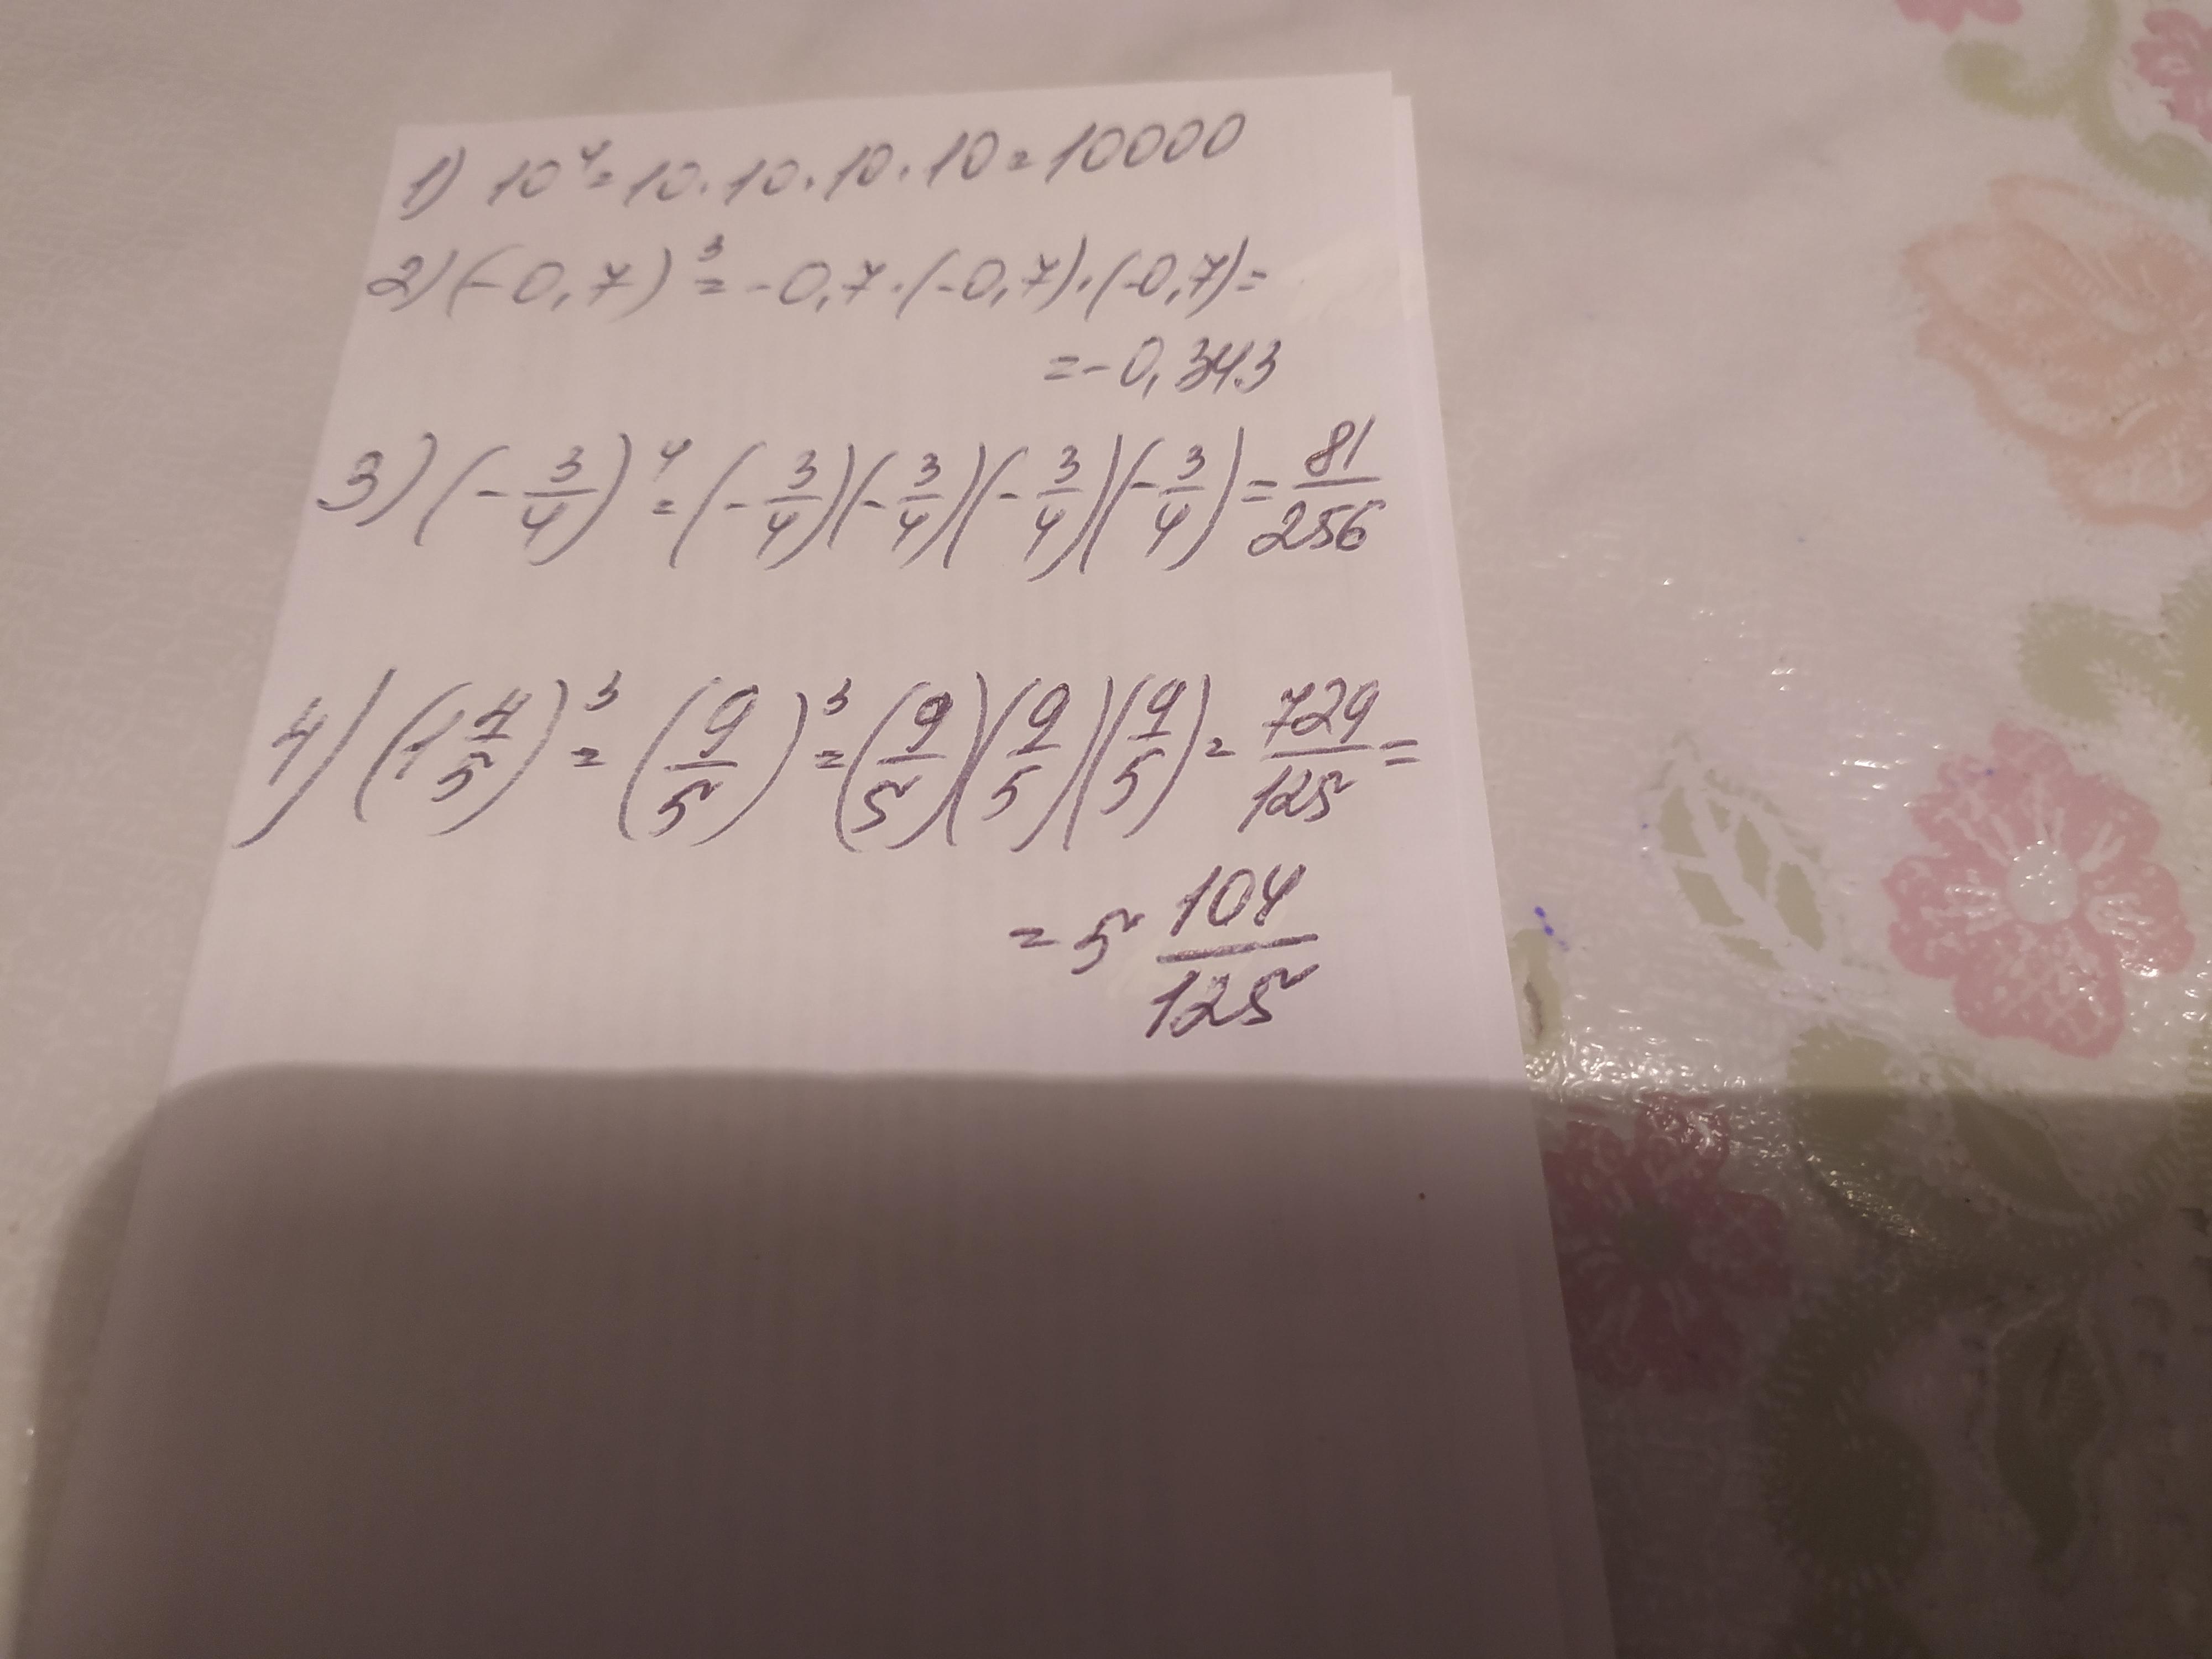 1) 10⁴ = 10 · 10 · 10 · 10 = 10000
2) (-0,7)³ = -0,7 · (-0,7) · (-0,7) =
= -0,343
3) (-3/4)⁴ = (-3/4)(-3/4)(-3/4)(-3/4) = 81/256
4) (1 4/5)³ = (9/5)³ = (9/5)(9/5)(9/5) = 729/125 =
= 5 104/125